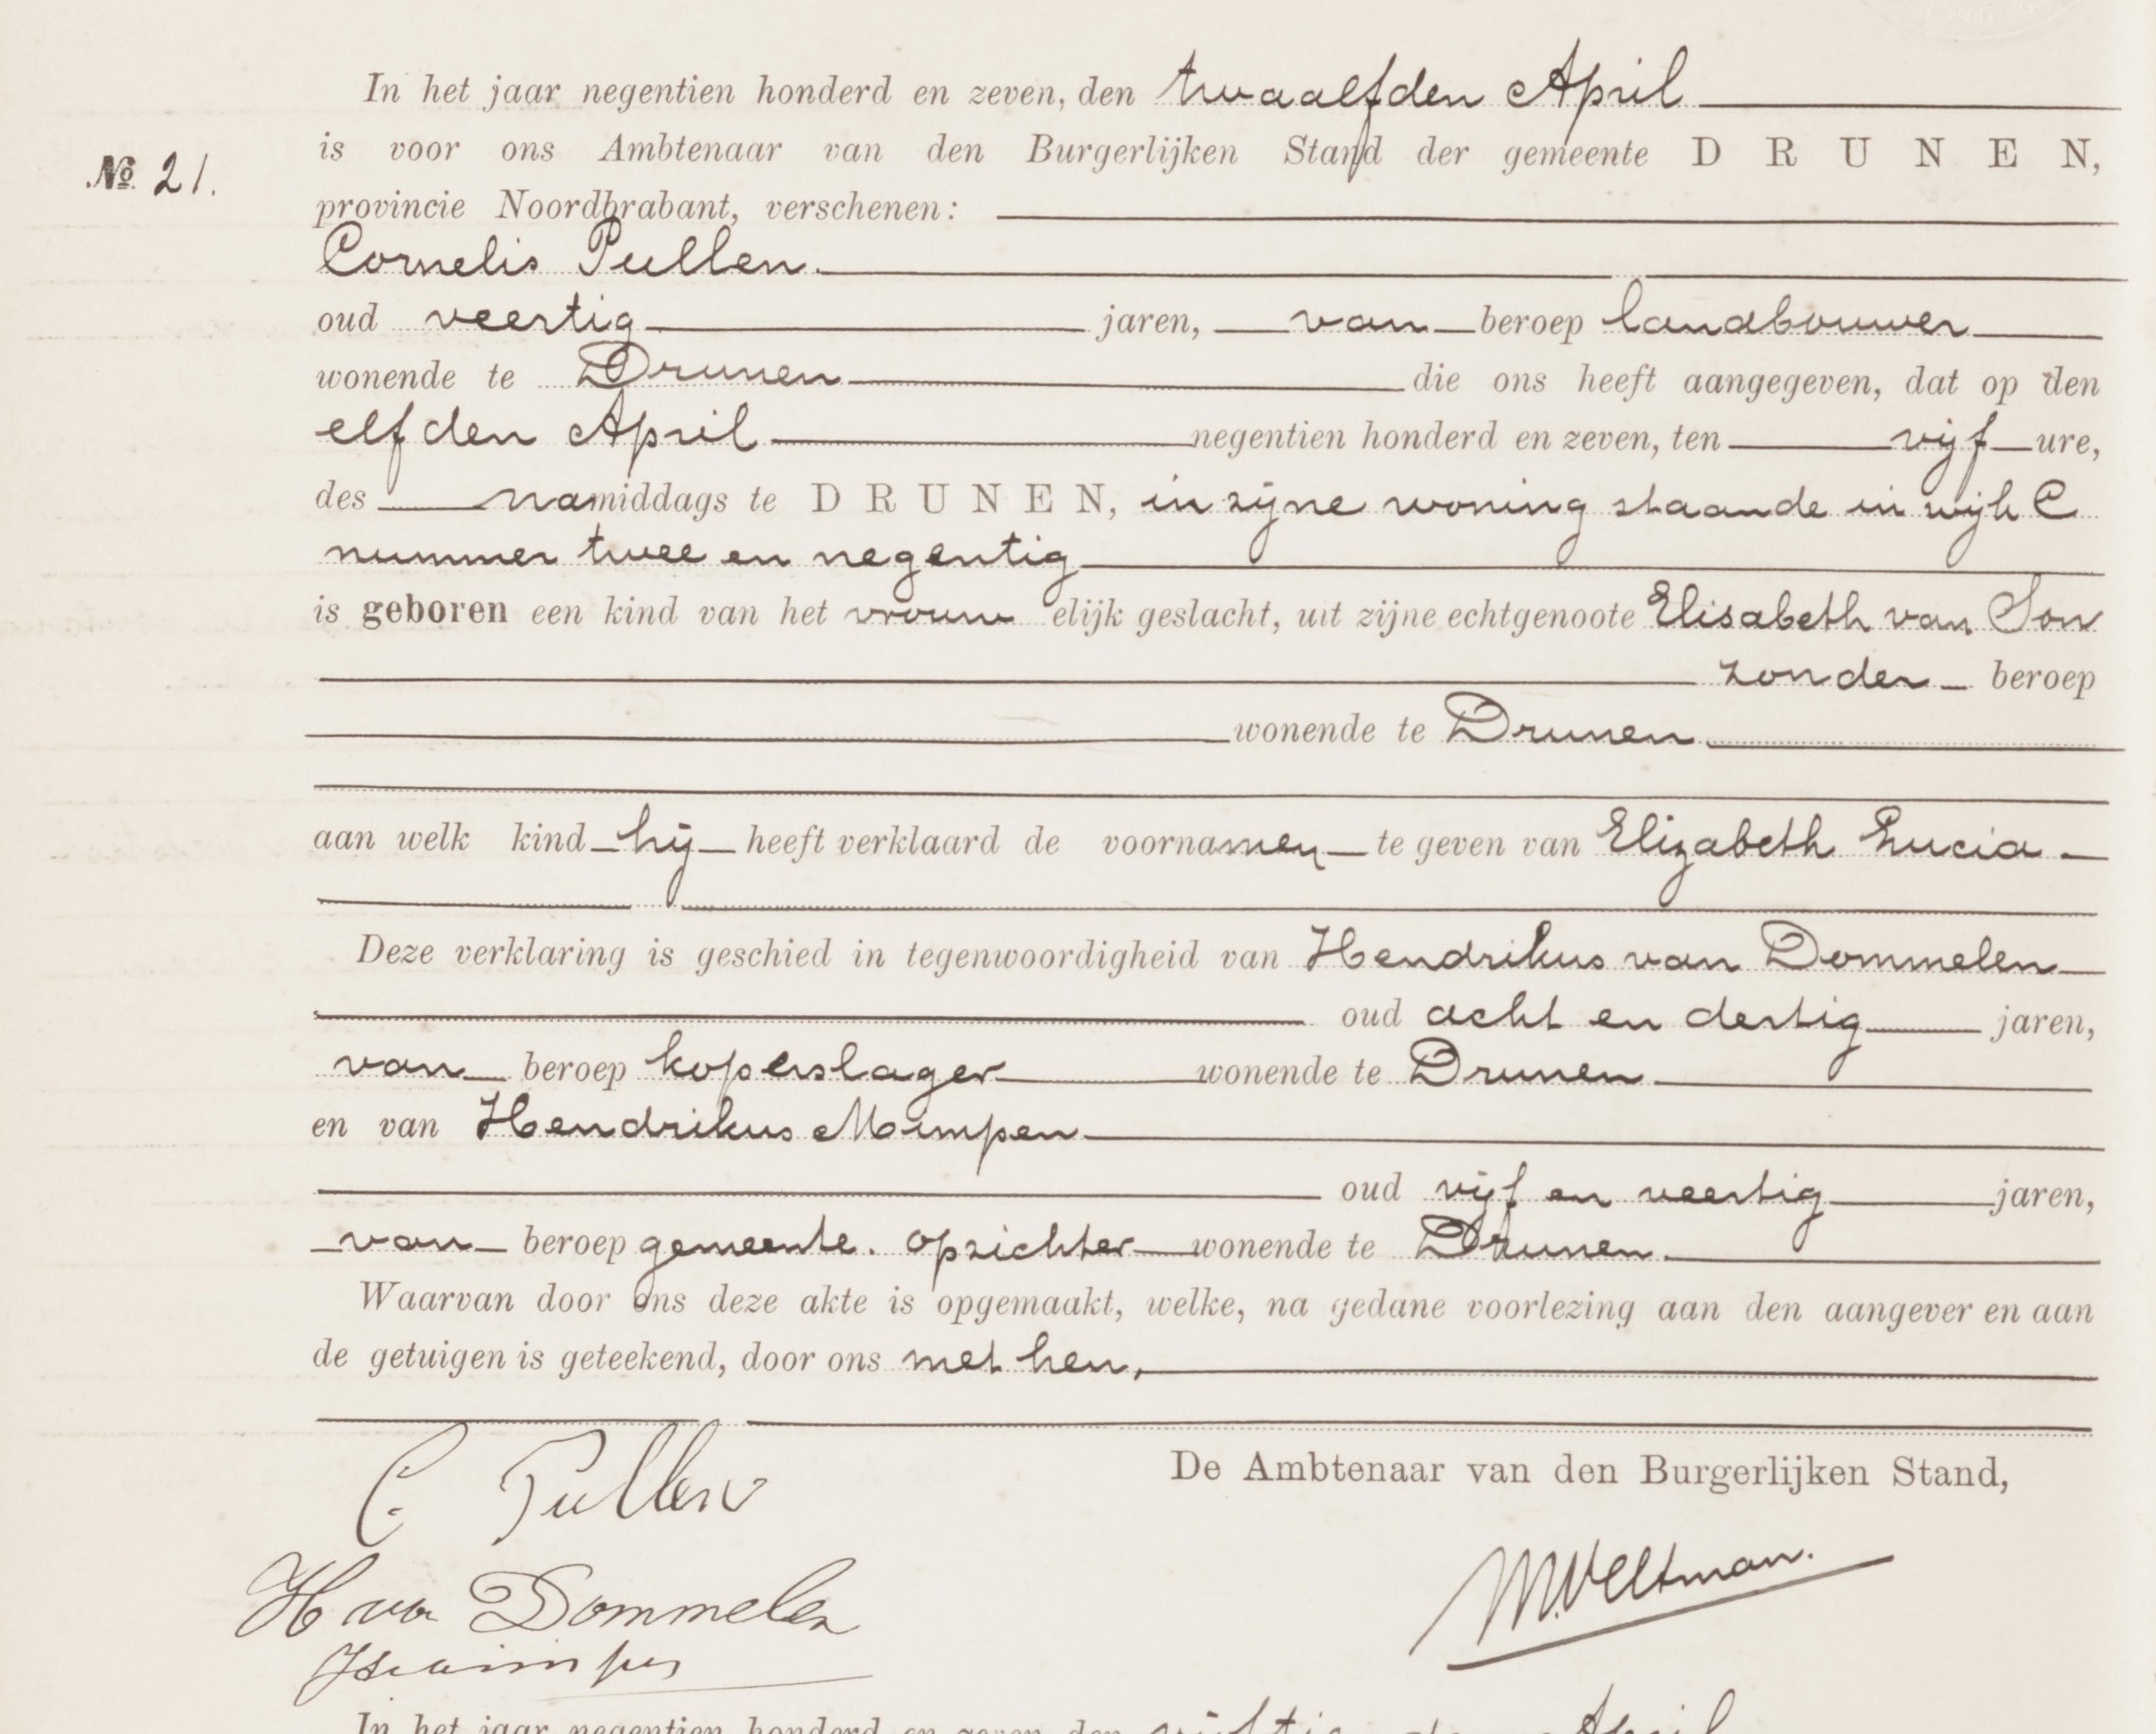 In het jaar negentien honderd en zeven, den twaalfden April
is voor ons Ambtenaar van den Burgerlijken Stand der gemeente DRUNEN,
No 21.
provincie Noordbrabant, verschenen:
Cornelis Pullen.
oud veertig jaren, van beroep landbouwer
wonende te Drunen die ons heeft aangegeven, dat op den
elfden April negentien honderd en zeven, ten vijf ure,
des namiddags te DRUNEN, in zijne woning staande in wijk C
nummer twee en negentig
is geboren een kind van het vrouwelijk geslacht, uit zijne echtgenoote Elisabeth van Son
zonder beroep
wonende te Drunen
aan welk kind hij heeft verklaard de voornamen te geven van Elizabeth Lucia
Deze verklaring is geschied in tegenwoordigheid van Hendrikus van Dommelen
oud acht en dertig jaren,
van beroep koperslager wonende te Drunen
en van Hendrikus Mimpen
oud vijf en veertig jaren,
van beroep gemeente. opzichter wonende te Drunen.
Waarvan door ons deze akte is opgemaakt, welke, na gedane voorlezing aan den aangever en aan
de getuigen is geteekend, door ons met hen.
C. Pullen
De Ambtenaar van den Burgerlijken Stand,
H van Dommelen
M. Veltman.
In het jaar negentien honderd en zeven den April